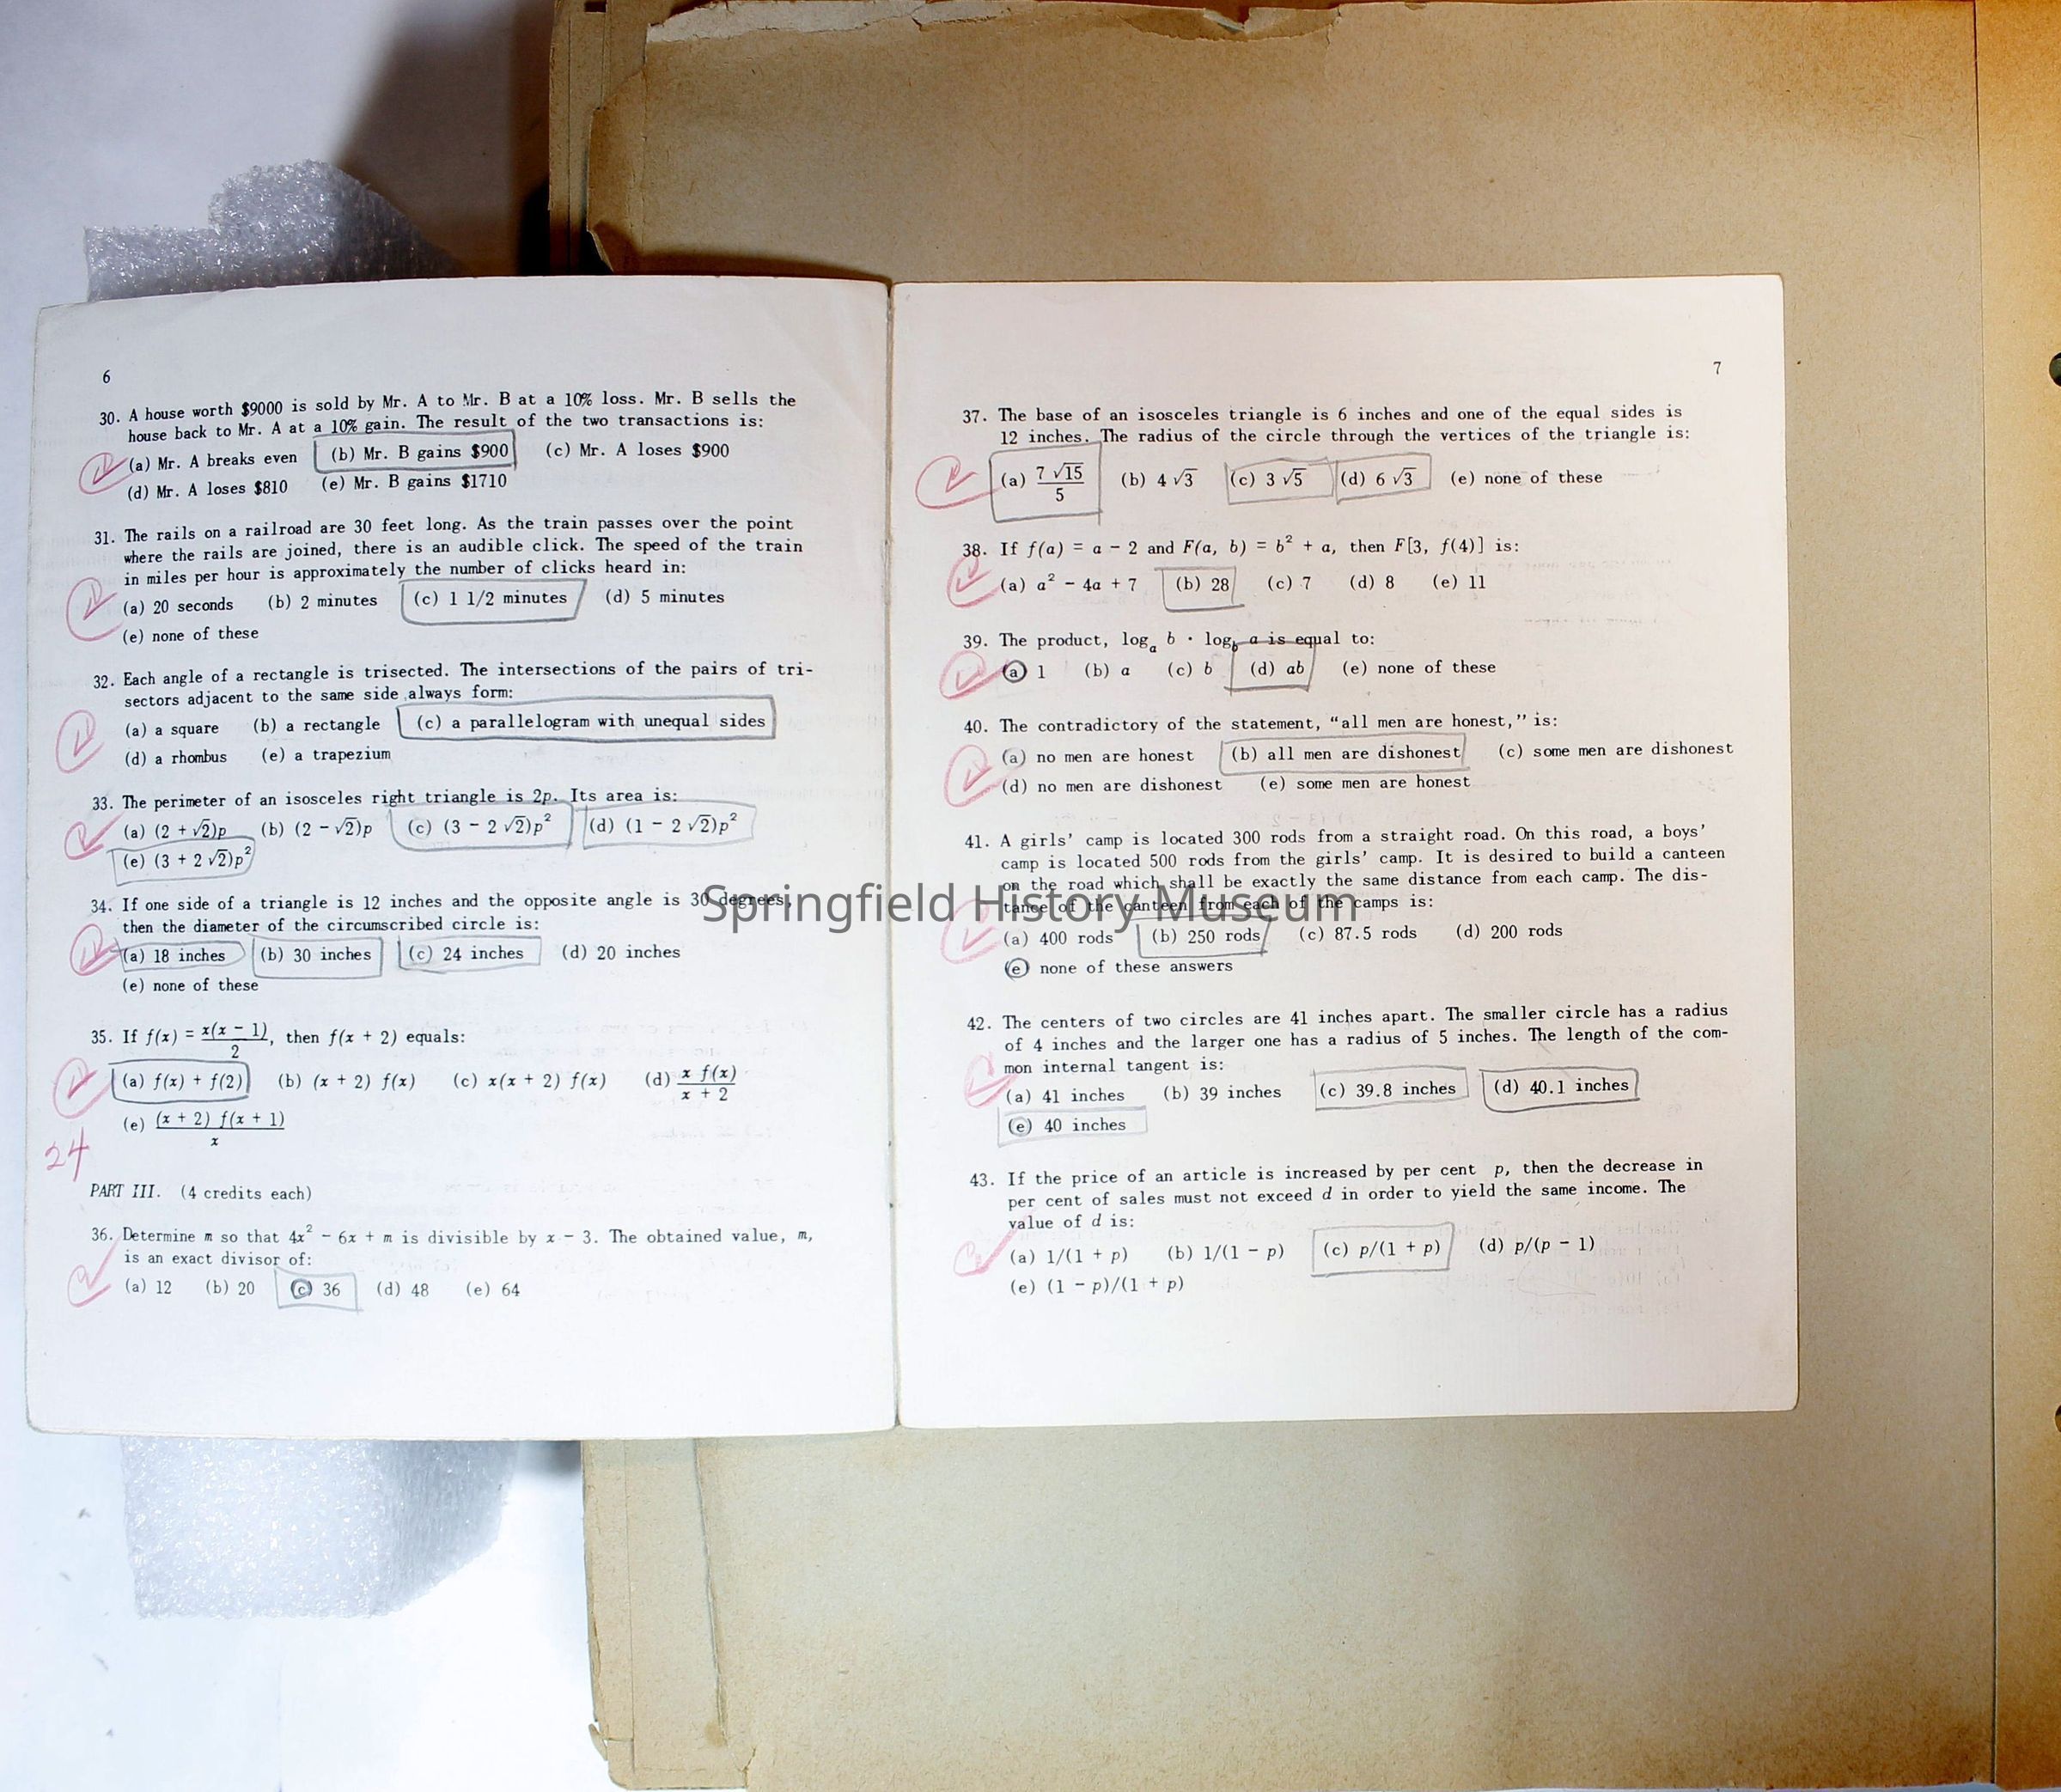 6
30. A house worth $9000 is sold by Mr. A to Mr. B at a 10% loss. Mr. B sells the
house back to Mr. A at a 10% gain. The result of the two transactions is:
(a) Mr. A breaks even (b) Mr. B gains $900 (c) Mr. A loses $900
(d) Mr. A loses $810 (e) Mr. B gains $1710
31. The rails on a railroad are 30 feet long. As the train passes over the point
where the rails are joined, there is an audible click. The speed of the train
in miles per hour is approximately the number of clicks heard in:
(a) 20 seconds (b) 2 minutes (c) 1 1/2 minutes (d) 5 minutes
(e) none of these
32. Each angle of a rectangle is trisected. The intersections of the pairs of tri-
sectors adjacent to the same side always form:
(a) a square (b) a rectangle (c) a parallelogram with unequal sides
(d) a rhombus (e) a trapezium
33. The perimeter of an isosceles right triangle is 2p. Its area is:
(a) (2 + √2)p (b) (2 − √2)p (c) (3 − 2√2)p² (d) (1 − 2√2)p²
(e) (3 + 2√2)p²
34. If one side of a triangle is 12 inches and the opposite angle is 30 degrees,
then the diameter of the circumscribed circle is:
(a) 18 inches (b) 30 inches (c) 24 inches (d) 20 inches
(e) none of these
35. If f(x) = x(x − 1)/2, then f(x + 2) equals:
(a) f(x) + f(2) (b) (x + 2) f(x) (c) x(x + 2) f(x) (d) x f(x)/x + 2
(e) (x + 2) f(x + 1)/x
24
PART III. (4 credits each)
36. Determine m so that 4x² − 6x + m is divisible by x − 3. The obtained value, m,
is an exact divisor of:
(a) 12 (b) 20 (c) 36 (d) 48 (e) 64
7
37. The base of an isosceles triangle is 6 inches and one of the equal sides is
12 inches. The radius of the circle through the vertices of the triangle is:
(a) 7√15/5 (b) 4√3 (c) 3√5 (d) 6√3 (e) none of these
38. If f(a) = a − 2 and F(a, b) = b² + a, then F[3, f(4)] is:
(a) a² − 4a + 7 (b) 28 (c) 7 (d) 8 (e) 11
39. The product, logₐ b · log_b a is equal to:
(a) 1 (b) a (c) b (d) ab (e) none of these
40. The contradictory of the statement, “all men are honest,” is:
(a) no men are honest (b) all men are dishonest (c) some men are dishonest
(d) no men are dishonest (e) some men are honest
41. A girls’ camp is located 300 rods from a straight road. On this road, a boys’
camp is located 500 rods from the girls’ camp. It is desired to build a canteen
on the road which shall be exactly the same distance from each camp. The dis-
tance of the canteen from each of the camps is:
(a) 400 rods (b) 250 rods (c) 87.5 rods (d) 200 rods
(e) none of these answers
42. The centers of two circles are 41 inches apart. The smaller circle has a radius
of 4 inches and the larger one has a radius of 5 inches. The length of the com-
mon internal tangent is:
(a) 41 inches (b) 39 inches (c) 39.8 inches (d) 40.1 inches
(e) 40 inches
43. If the price of an article is increased by per cent p, then the decrease in
per cent of sales must not exceed d in order to yield the same income. The
value of d is:
(a) 1/(1 + p) (b) 1/(1 − p) (c) p/(1 + p) (d) p/(p − 1)
(e) (1 − p)/(1 + p)
Springfield History Museum